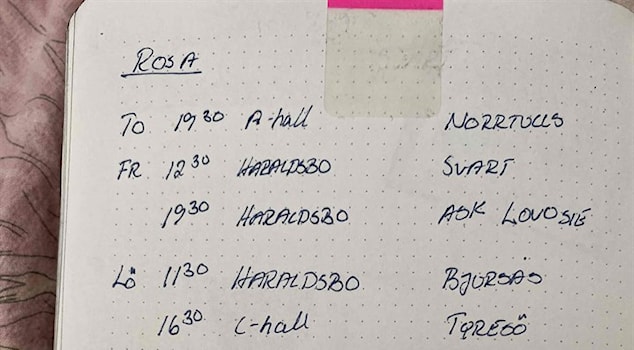 ROSA
TO 19³⁰ A-hall NORRTULLS
FR 12³⁰ HARALDSBO SVART
19³⁰ HARALDSBO ASK LOVOSIE
LÖ 11³⁰ HARALDSBO BJURSÅS
16³⁰ C-hall TYRESÖ